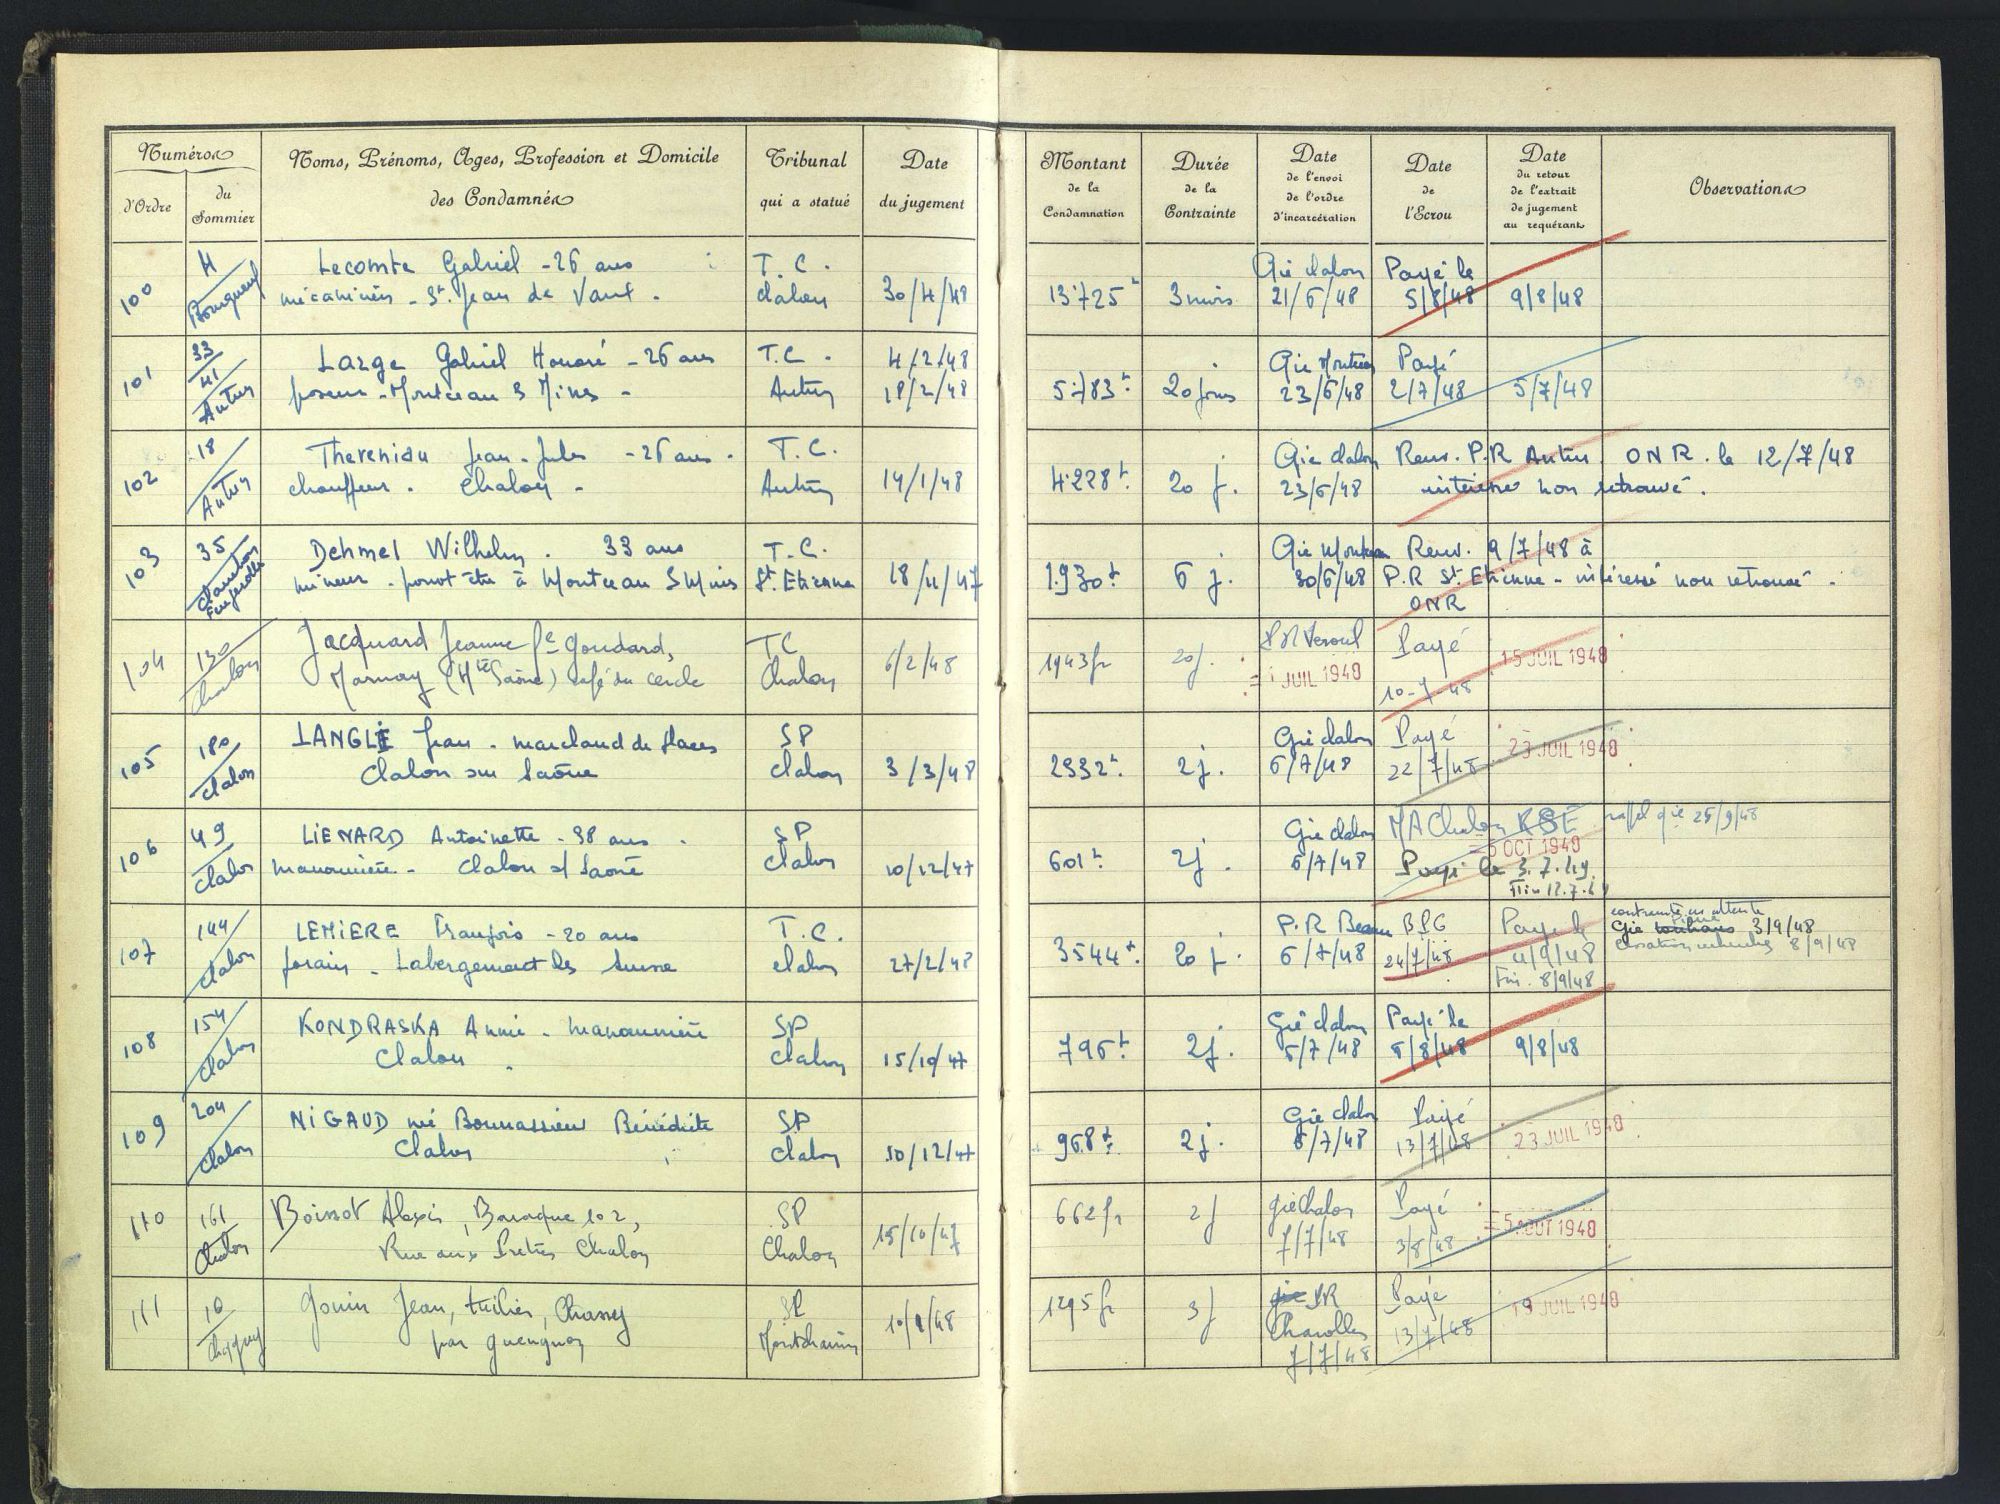 Numéros
Noms, Prénoms, Ages, Profession et Domicile
des Condamnés
Tribunal
qui a statué
Date
du jugement
d'Ordre
du
Sommier
Montant
de la
Condamnation
Durée
de la
Contrainte
Date
de l'envoi
de l'ordre
d'incarcération
Date
de
l'Ecrou
Date
du retour
de l'extrait
de jugement
au requérant
Observations
100
Lecomte Gabriel - 26 ans
mécanicien - St. Jean de Vaux.
T.C.
Chalon
30/4/48
13.725
3 mois
Gie Chalon
21/6/48
Payé le
5/8/48
9/8/48
101
33
41
Autun
Large Gabriel Honoré - 26 ans
poseur - Montceau s Mines -
T.C.
Autun
4/2/48
18/2/48
5.783
20 jours
Gie Montceau
23/6/48
Payé
2/7/48
5/7/48
102
18
Autun
Jean-Jules - 26 ans.
chauffeur. Chalon -
T.C.
Autun
14/1/48
4.228
20 j.
Gie Chalon
23/6/48
Renv. P.R Autun ONR. le 12/7/48
intéressé non retrouvé.
103
35
Chambon
Feugerolles
Dehmel Wilhelm. 33 ans
mineur - peut être à Montceau s Mines
T.C.
St. Etienne
18/11/47
1.930
6 j.
Gie Montceau
30/6/48
Renv. 9/7/48 à
P.R St. Etienne - intéressé non retrouvé.
ONR
104
130
Chalon
Jacquard Jeanne fe Goudard,
Marnay (Hte Saône) café du cercle
TC
Chalon
6/2/48
1943 fr
20 j.
P R Vesoul
1 JUIL 1948
Payé
10-7-48
15 JUIL 1948
105
180
Chalon
LANGLE Jean - marchand de glaces
Chalon sur Saône
SP
Chalon
3/3/48
2932
2 j.
Gie Chalon
6/7/48
Payé
22/7/48
23 JUIL 1948
106
49
Chalon
LIENARD Antoinette - 38 ans.
manouvrière - Chalon s/ Saône
SP
Chalon
10/12/47
601
2 j.
Gie Chalon
6/7/48
MA Chalon
5 OCT 1948
Payé le 3.7.49
rappel gie 25/9/48
107
144
Chalon
LEMIERE François - 20 ans
forain - Labergement les Seurre
T.C.
Chalon
27/2/48
3544
20 j.
P.R Beaune
6/7/48
24/7/48
Payé le
4/9/48
Fin. 8/9/48
contrainte en attente
Gie 3/9/48
cessation recherches 8/9/48
108
154
Chalon
KONDRASKA Annie - manouvrière
Chalon.
SP
Chalon
15/10/47
796
2 j.
Gie Chalon
6/7/48
Payé le
5/8/48
9/8/48
109
204
Chalon
NIGAUD né Bonnassieu Bénédicte
Chalon
SP
Chalon
10/12/47
968
2 j.
Gie Chalon
6/7/48
Payé
13/7/48
23 JUIL 1948
110
161
Chalon
Boissot Alexis, Baraque 102,
Rue aux Prêtres Chalon
SP
Chalon
15/10/47
662 fr
2 j
gie Chalon
7/7/48
Payé
3/8/48
5 AOUT 1948
111
10
Chagny
Gouin Jean, tuilier, Chassy
par Gueugnon
SP
Montchanin
1295 fr
3 j
gie PR
Charolles
7/7/48
Payé
13/7/48
19 JUIL 1948